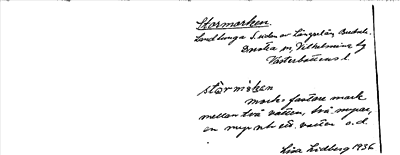 Stormarken.
Sundlunga S sidan av Långselån, Buduk.
Dorotea sn, Vilhelmina lg
Västerbottens l.
stormarken
mark, fastare mark
mellan två vatten, två myrar,
en myr och ett vatten o.d.
Lisa Lidberg 1936